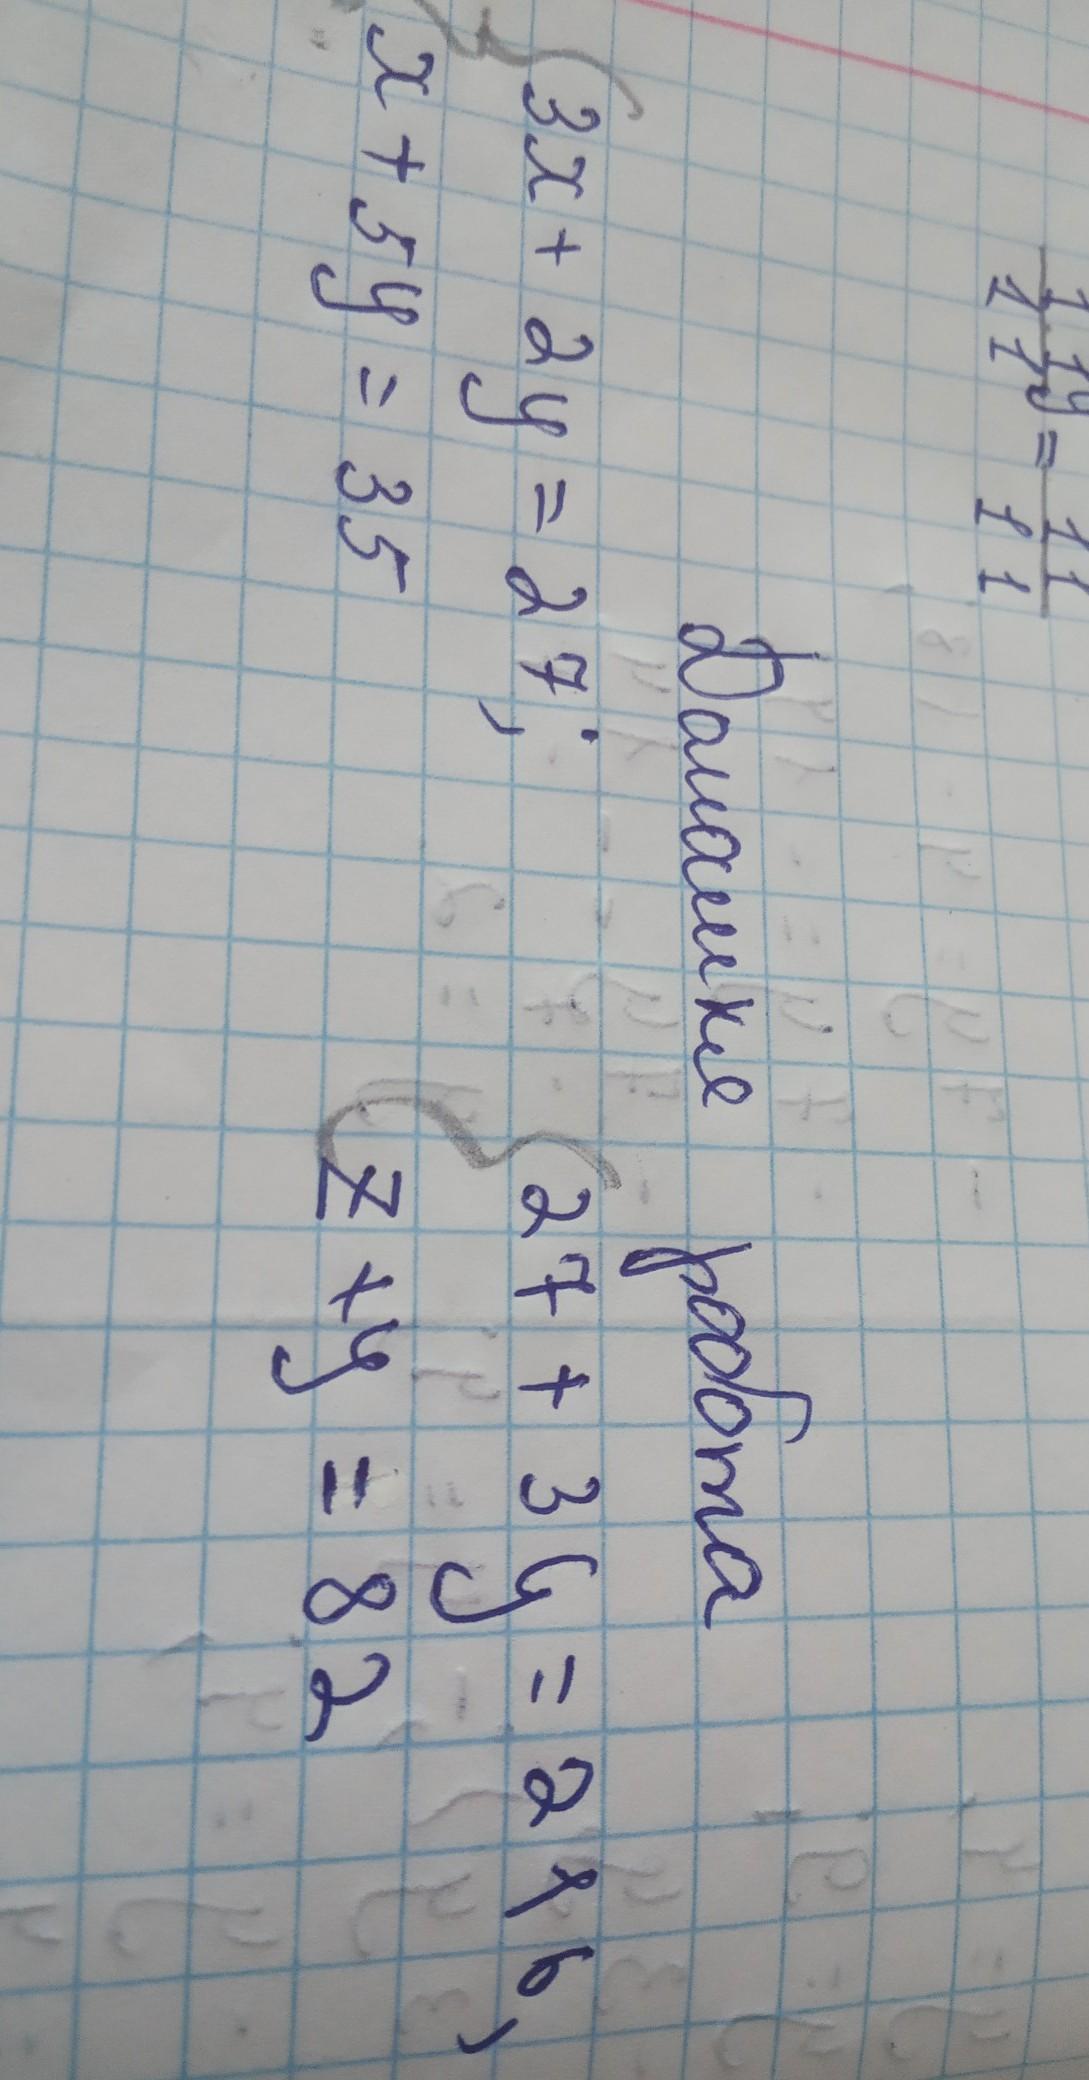 11y = 11
11 11
Домашня робота
3x + 2y = 27;
x + 5y = 35
27 + 3y = 246,
7 + y = 82